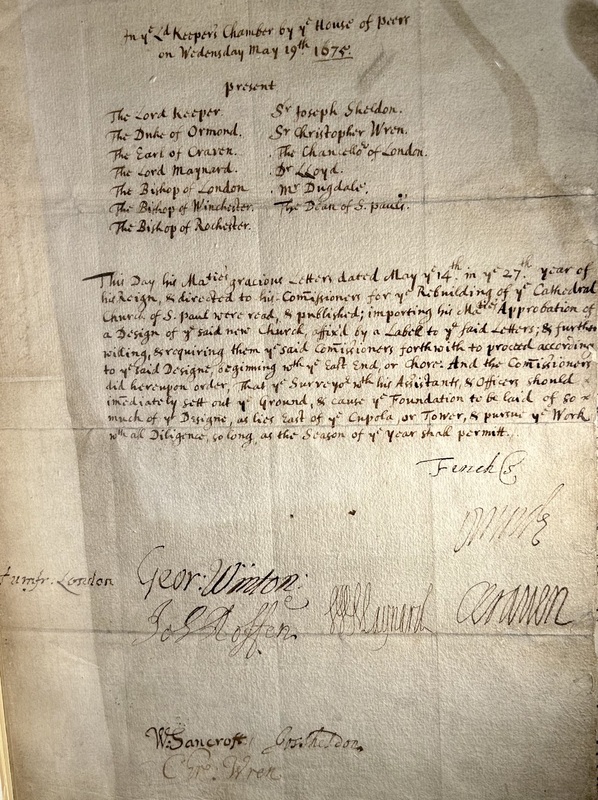 In yᵉ Lᵈ Keepers Chamber by yᵉ House of Peers
on Wedensday May 19ᵗʰ 1675.
Present
The Lord Keeper.
The Duke of Ormond.
The Earl of Craven.
The Lord Maynard.
The Bishop of London
The Bishop of Winchester.
The Bishop of Rochester.
Sʳ Joseph Sheldon.
Sʳ Christopher Wren.
The Chancelloʳ of London.
Dʳ LLoyd.
Mʳ Dugdale.
The Dean of S. Pauls.
This Day his Maᵗⁱᵉˢ gracious Letters dated May yᵉ 14ᵗʰ in yᵉ 27ᵗʰ year of
his Reign, & directed to his Com̄issioners for yᵉ Rebuilding of yᵉ Cathedral
Church of S. Paul were read, & published; importing his Maᵗⁱᵉˢ Approbation of
a Design of yᵉ said new Church, affix'd by a Label to yᵉ said Letters; & further
willing, & requiring them yᵉ said Com̄issioners forthwith to proceed according
to yᵉ said Designe, beginning wᵗʰ yᵉ East End, or Chore. And the Com̄issioners
did hereupon order, That yᵉ Surveyoʳ wᵗʰ his Assistants, & Officers should
im̄ediately sett out yᵉ Ground, & cause yᵉ Foundation to be laid of so
much of yᵉ Designe, as lies East of yᵉ Cupola or Tower, & pursue yᵉ Work
wᵗʰ all Diligence, so long, as the Season of yᵉ year shall permitt.
Finch C.
Ormonde
Humfr: London
Geor: Winton:
Jo: Roffen.
W Maynard
Craven
W. Sancroft
Jos. Sheldon.
Chr. Wren